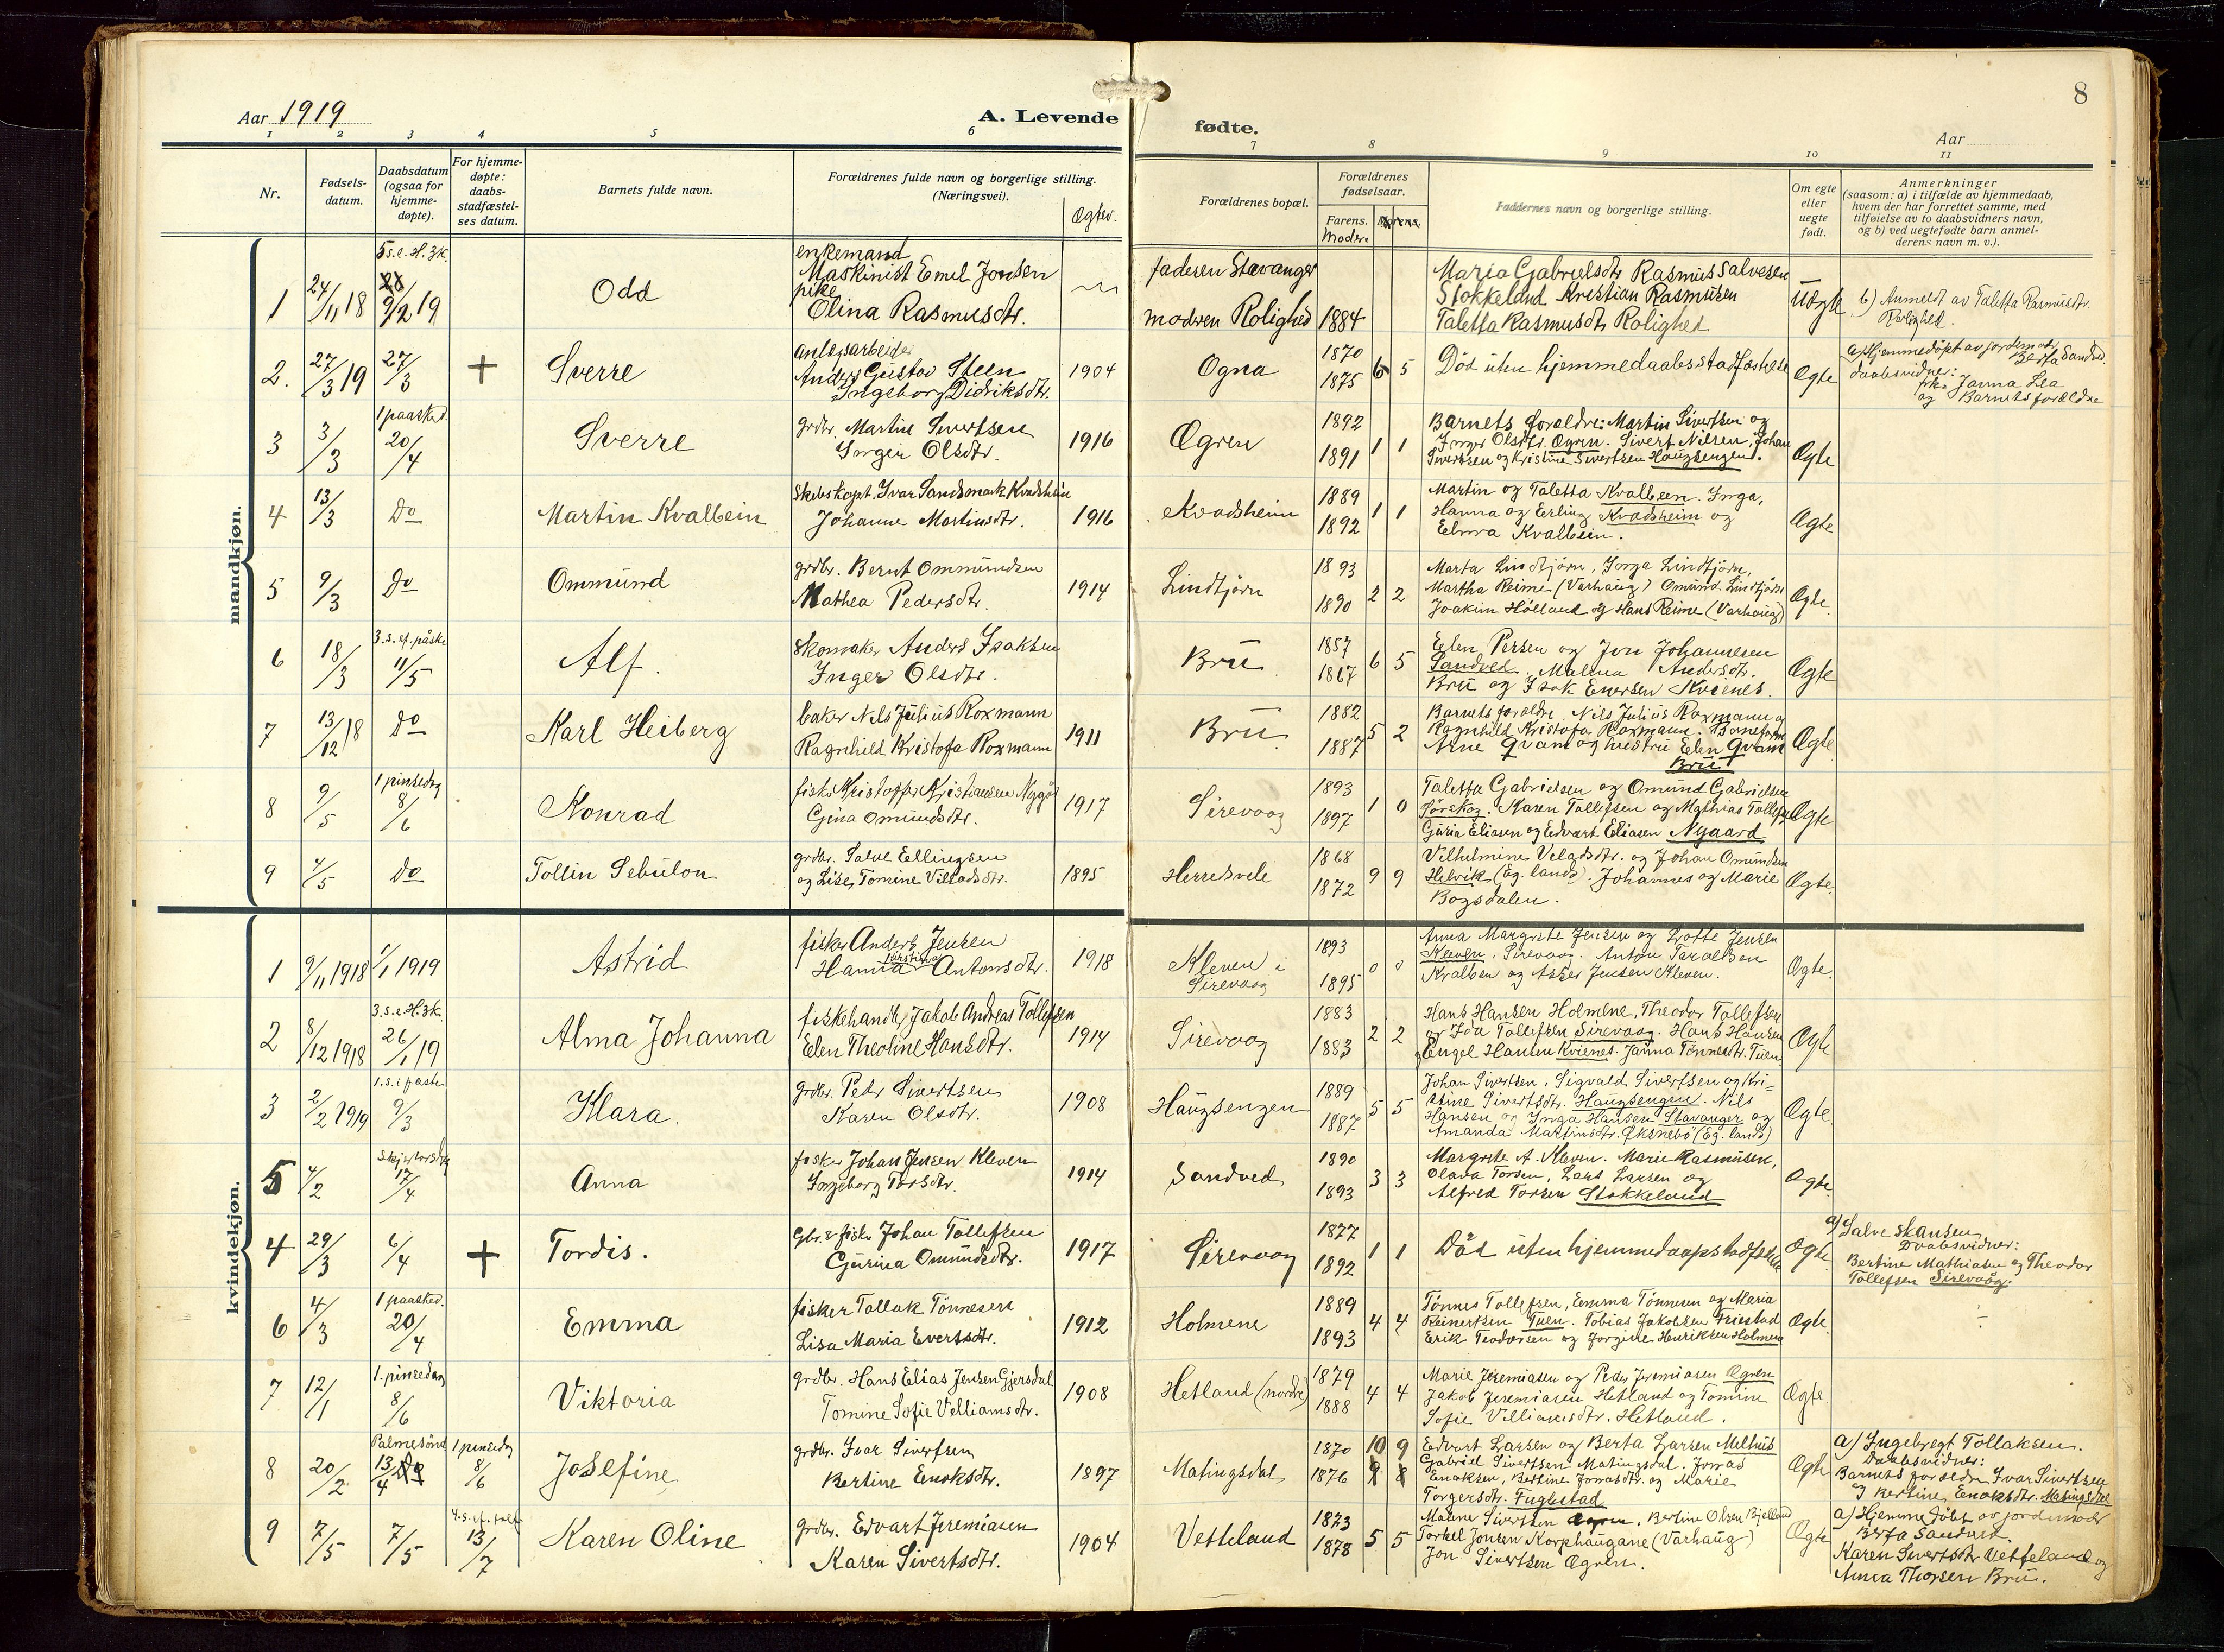 8
Aar 1919
A. Levende
fødte.
Aar
1 2 3 4 5 6 7 8 9 10 11
Nr.
Fødsels-
datum.
Daabsdatum
(ogsaa for
hjemme-
døpte).
For hjemme-
døpte:
daabs-
stadfæstel-
ses datum.
Barnets fulde navn.
Forældrenes fulde navn og borgerlige stilling.
(Næringsvei).
Forældrenes bopæl.
Forældrenes
fødselsaar.
Farens.
Moder.
Faddernes navn og borgerlige stilling.
Om egte
eller
uegte
født.
Anmerkninger
(saasom: a) i tilfælde av hjemmedaab,
hvem der har forrettet samme, med
tilføielse av to daabsvidners navn,
og b) ved uegtefødte barn anmel-
derens navn m. v.).
mandkjøn.
1 24/11 18 5 s.e.H.3k. 9/2 19 Odd
enkemand
Maskinist Emil Jonsen
pike
Olina Rasmusdtr.
faderen Stavanger
modren Rolighed 1884
Maria Gabrielsdtr Rasmus Salvesen
Stokkeland Kristian Rasmusen
Taletta Rasmusdtr Rolighet
Uægte
b) Anmeldt av Taletta Rasmusdtr.
Rolighed.
2. 27/3 19 27/3 + Sverre
Anlegsarbeider
Anders Gustav Steen
Ingeborg Didriksdtr.
1904 Ogna 1870 1875 6 5
Död uten hjemmedaabsstadfæstelse
Ægte
a) Hjemmedöpt av jordemod.
Berta Sandved.
daabsvidner:
frk. Janna Lea
og Barnets forældre
3 3/3 1 paasked. 20/4 Sverre
grdbr. Martin Sivertsen
Inger Olsdtr.
1916 Ægren 1892 1891 1 1
Barnets foraldre: Martin Sivertsen og
Inger Olsdtr. Ægren. Sivert Nilsen, Johan
Sivertsen og Kristine Sivertsen Haugsengen.
Ægte
4 13/3 Do Martin Kvalbein
Skibskapt. Ivar Sandsmark Kvadsheim
Johanne Martinsdtr.
1916 Kvadsheim 1889 1892 1 1
Martin og Taletta Kvalbeen. Inga,
Hanna og Erling Kvadsheim og
Elmra Kvalbein.
Ægte
5 9/3 Do Ommund
grdbr. Bernt Ommundsen
Mathea Pedersdtr.
1914 Lindtjørn 1893 1890 2 2
Marta Lindtjørn, Jorga Lindtjørn,
Martha Reime (Varhaug) Omund Lindtjørn
Joakim Hölland og Hans Reime (Varhaug)
Ægte.
6 18/3 3. s. ef. påske 11/5 Alf.
Skomaker Anders Isaksen
Inger Olsdtr.
Bru 1857 1867 6 5
Elen Persen og Jon Johannesen
Sandved. Malena Andersdtr.
Bru og Isak Enersen Kvienes.
Ægte
7 13/12 18 Do Karl Heiberg
baker Nils Julius Roxmann
Ragnhild Kristofa Roxmann
1911 Bru 1882 1887 5 2
Barnets foraldre Nils Julius Roxmann og
Ragnhild Kristofa Roxmann.
Arne Qvam og hustru Elen Qvam
Bru
Ægte
8 9/5 1 pinsedag 8/6 Konrad
fisker Kristoffer Kristiansen
Gina Omundsdtr.
1917 Sirevaag 1893 1897 1 0
Taletta Gabrielsen og Omund Gabrielsen
Sörskog. Karen Tollefsen og Mathias Tollefsen
Guria Eliasen og Edvart Eliasen Nygaard
Ægte
9 4/5 Do Tollin Sebulon
grdbr. Salve Ellingsen
og Lise Tomine Villadsdtr.
1895 Herredsvele 1868 1872 9 9
Vilhelmine Veladsdtr. og Johan Omundsen
Helvik (Eg. lands). Johannes og Marie
Bogsdalen.
Ægte.
kvindekjøn.
1 9/11 1918 1/1 1919 Astrid
fisker Anders Jensen
Hanna Kristine Antonsdtr.
1918 Kleven i
Sirevaag 1893 1895 0 0
Anna Margrete Jensen og Lotte Jensen
Kleven, Sirevaag. Anton Taraldsen
Kvalben og Asser Jensen Kleven.
Ægte.
2 8/12 1918 3. s.e.H.3k. 26/1 19 Alma Johanna
fiskehandler Jakob Andreas Tollefsen
Elen Theoline Hansdtr.
1914 Sirevaag 1883 1883 2 2
Hans Hansen Holmene, Theodor Tollefsen
og Ida Tollefsen Sirevaag. Hans Hansen
Engel Hansen Kvienes. Janna Tönnesdtr. Tuen
Ægte
3 2/2 1919 1. s. i faste 9/3 Klara.
grdbr. Peder Sivertsen
Karen Olsdtr.
1908 Haugsengen 1889 1887 5 5
Johan Sivertsen, Sigvald Sivertsen og Kri-
stine Sivertsdtr. Haugsengen. Nils
Hansen og Inga Hansen Stavanger og
Amanda Martinsdtr. Øksnebö (Eg. lands)
Ægte
5 4/2 Skjertorsdag 17/4 Anna
fisker Johan Jensen Kleven
Ingeborg Torsdtr.
1914 Sandved 1890 1893 3 3
Margrete A. Kleven. Marie Rasmusen,
Olava Torsen, Lars Larsen og
Alfred Torsen Stokkeland
Ægte.
4 29/3 6/4 + Tordis.
Gbr. & fisker Johan Tollefsen
Gurina Omundsdtr.
1917 Sirevaag 1877 1892 1 1
Död uten hjemmedaapstadfestelse
Ægte.
a) Salve Skansen
Daabsvidner:
Bertine Mathiasen og Theodor
Tollefsen Sirevaag.
6 4/3 1 paasked. 20/4 Emma
fisker Tollak Tönnesen
Lisa Maria Evertsdtr.
1912 Holmene 1889 1893 4 4
Tönnes Tollefsen, Emma Tönnesen og Maria
Reinertsen Tuen. Tobias Jakobsen Friestad
Erik Teodorsen og Jorgine Henriksen Holmene
Ægte.
7 12/1 1. pinsedag 8/6 Viktoria
grdbr. Hans Elias Jensen Gjersdal
Tomine Sofie Velliamsdtr.
1908 Hetland (nordre) 1879 1888 4 4
Marie Jeremiasen og Peder Jeremiasen Ægren
Jakob Jeremiasen Hetland og Tomine
Sofie Velliamsdtr. Hetland.
Ægte
8 20/2 Palmesönd. 13/4 1 pinsedag 8/6 Josefine
grdbr. Ivar Sivertsen
Bertine Enoksdtr.
1897 Matingsdal 1870 1876 10 9
Edvart Larsen og Berta Larsen Melhus
Gabriel Sivertsen Matingsdal. Jonas
Enoksen, Bertine Jonasdtr. og Marie
Torgersdtr. Fuglestad
Ægte
a) Ingebregt Tollaksen.
Daabsvidner:
Barnets foreldre Ivar Sivertsen
Bertine Enoksdtr. Matingsdal
9 7/5 7/5 4. s. ef. 13/7 Karen Oline
grdbr. Edvart Jeremiasen
Karen Sivertsdtr.
1904 Vetteland 1873 1878 5 5
Malene Sivertsen. Bertine Olsen Bjelland
Torkel Jonsen Korphaugane (Varhaug)
Jon Sivertsen Ægren.
Ægte
a) Hjemmedöbt av jordemoder
Berta Sandved
Karen Sivertsdtr Vetteland og
Anna Thorsen Bru.